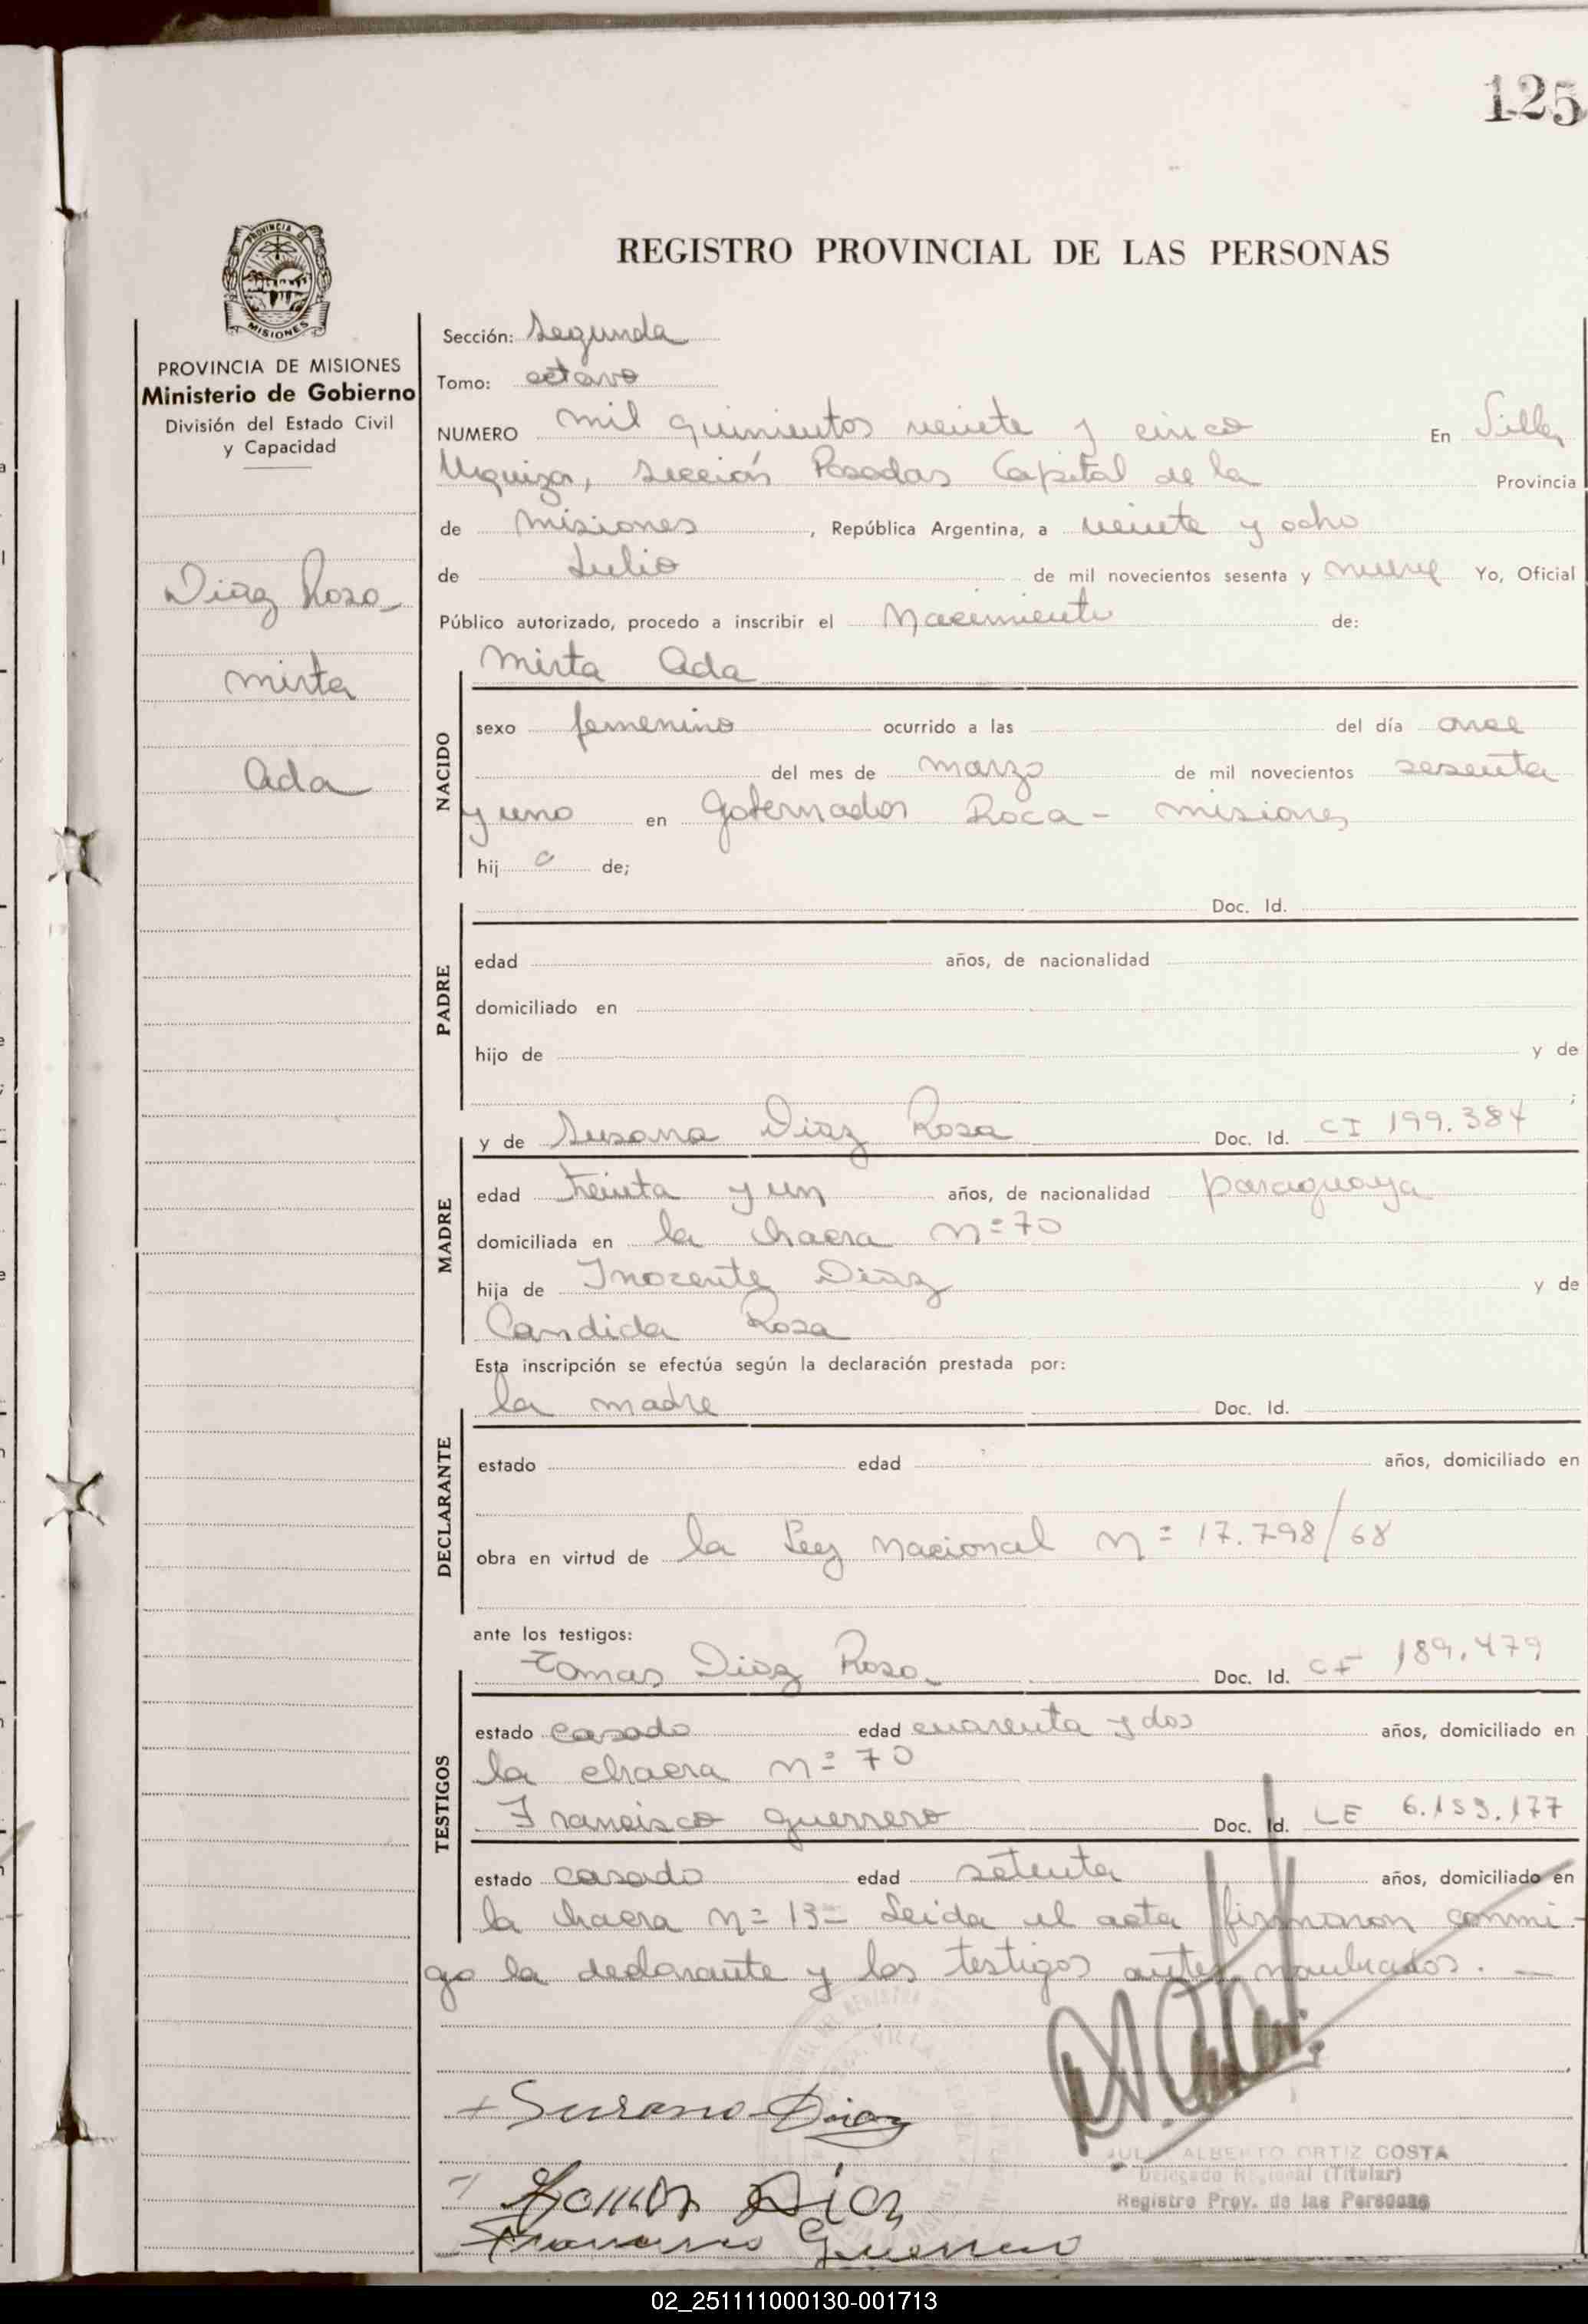 125
REGISTRO PROVINCIAL DE LAS PERSONAS
PROVINCIA DE MISIONES
MISIONES
PROVINCIA DE MISIONES
Ministerio de Gobierno
División del Estado Civil
y Capacidad
Diaz Rosa
Mirta
Ada
Sección: Segunda
Tomo: octavo
NUMERO mil quinientos veinte y cinco En Villa
Urquiza, sección Posadas Capital de la Provincia
de Misiones, República Argentina, a veinte y ocho
de Julio de mil novecientos sesenta y nueve Yo, Oficial
Público autorizado, procedo a inscribir el Nacimiento de:
Mirta Ada
NACIDO
sexo femenino ocurrido a las del día once
del mes de marzo de mil novecientos sesenta
y uno en Gobernador Roca - Misiones
hij a de;
PADRE
Doc. Id.
edad años, de nacionalidad
domiciliado en
hijo de y de
;
MADRE
y de Susana Diaz Rosa Doc. Id. CI 199.384
edad treinta y un años, de nacionalidad paraguaya
domiciliada en la chacra n= 70
hija de Inocente Diaz y de
Candida Rosa
Esta inscripción se efectúa según la declaración prestada por:
DECLARANTE
la madre Doc. Id.
estado edad años, domiciliado en
obra en virtud de la Ley Nacional N= 17.798/68
ante los testigos:
TESTIGOS
Tomas Diaz Rosa Doc. Id. CI 189.479
estado casado edad cuarenta y dos años, domiciliado en
la chacra n= 70
Francisco Guerrero Doc. Id. LE 6.153.177
estado casado edad setenta años, domiciliado en
la chacra n= 13- Leida el acta firmaron conmi-
go la declarante y los testigos antes nombrados. -
Susana Diaz
Tomas Diaz
Francisco Guerrero
JULIO ALBERTO ORTIZ COSTA
Delegado Regional (Titular)
Registro Prov. de las Personas
02_251111000130-001713